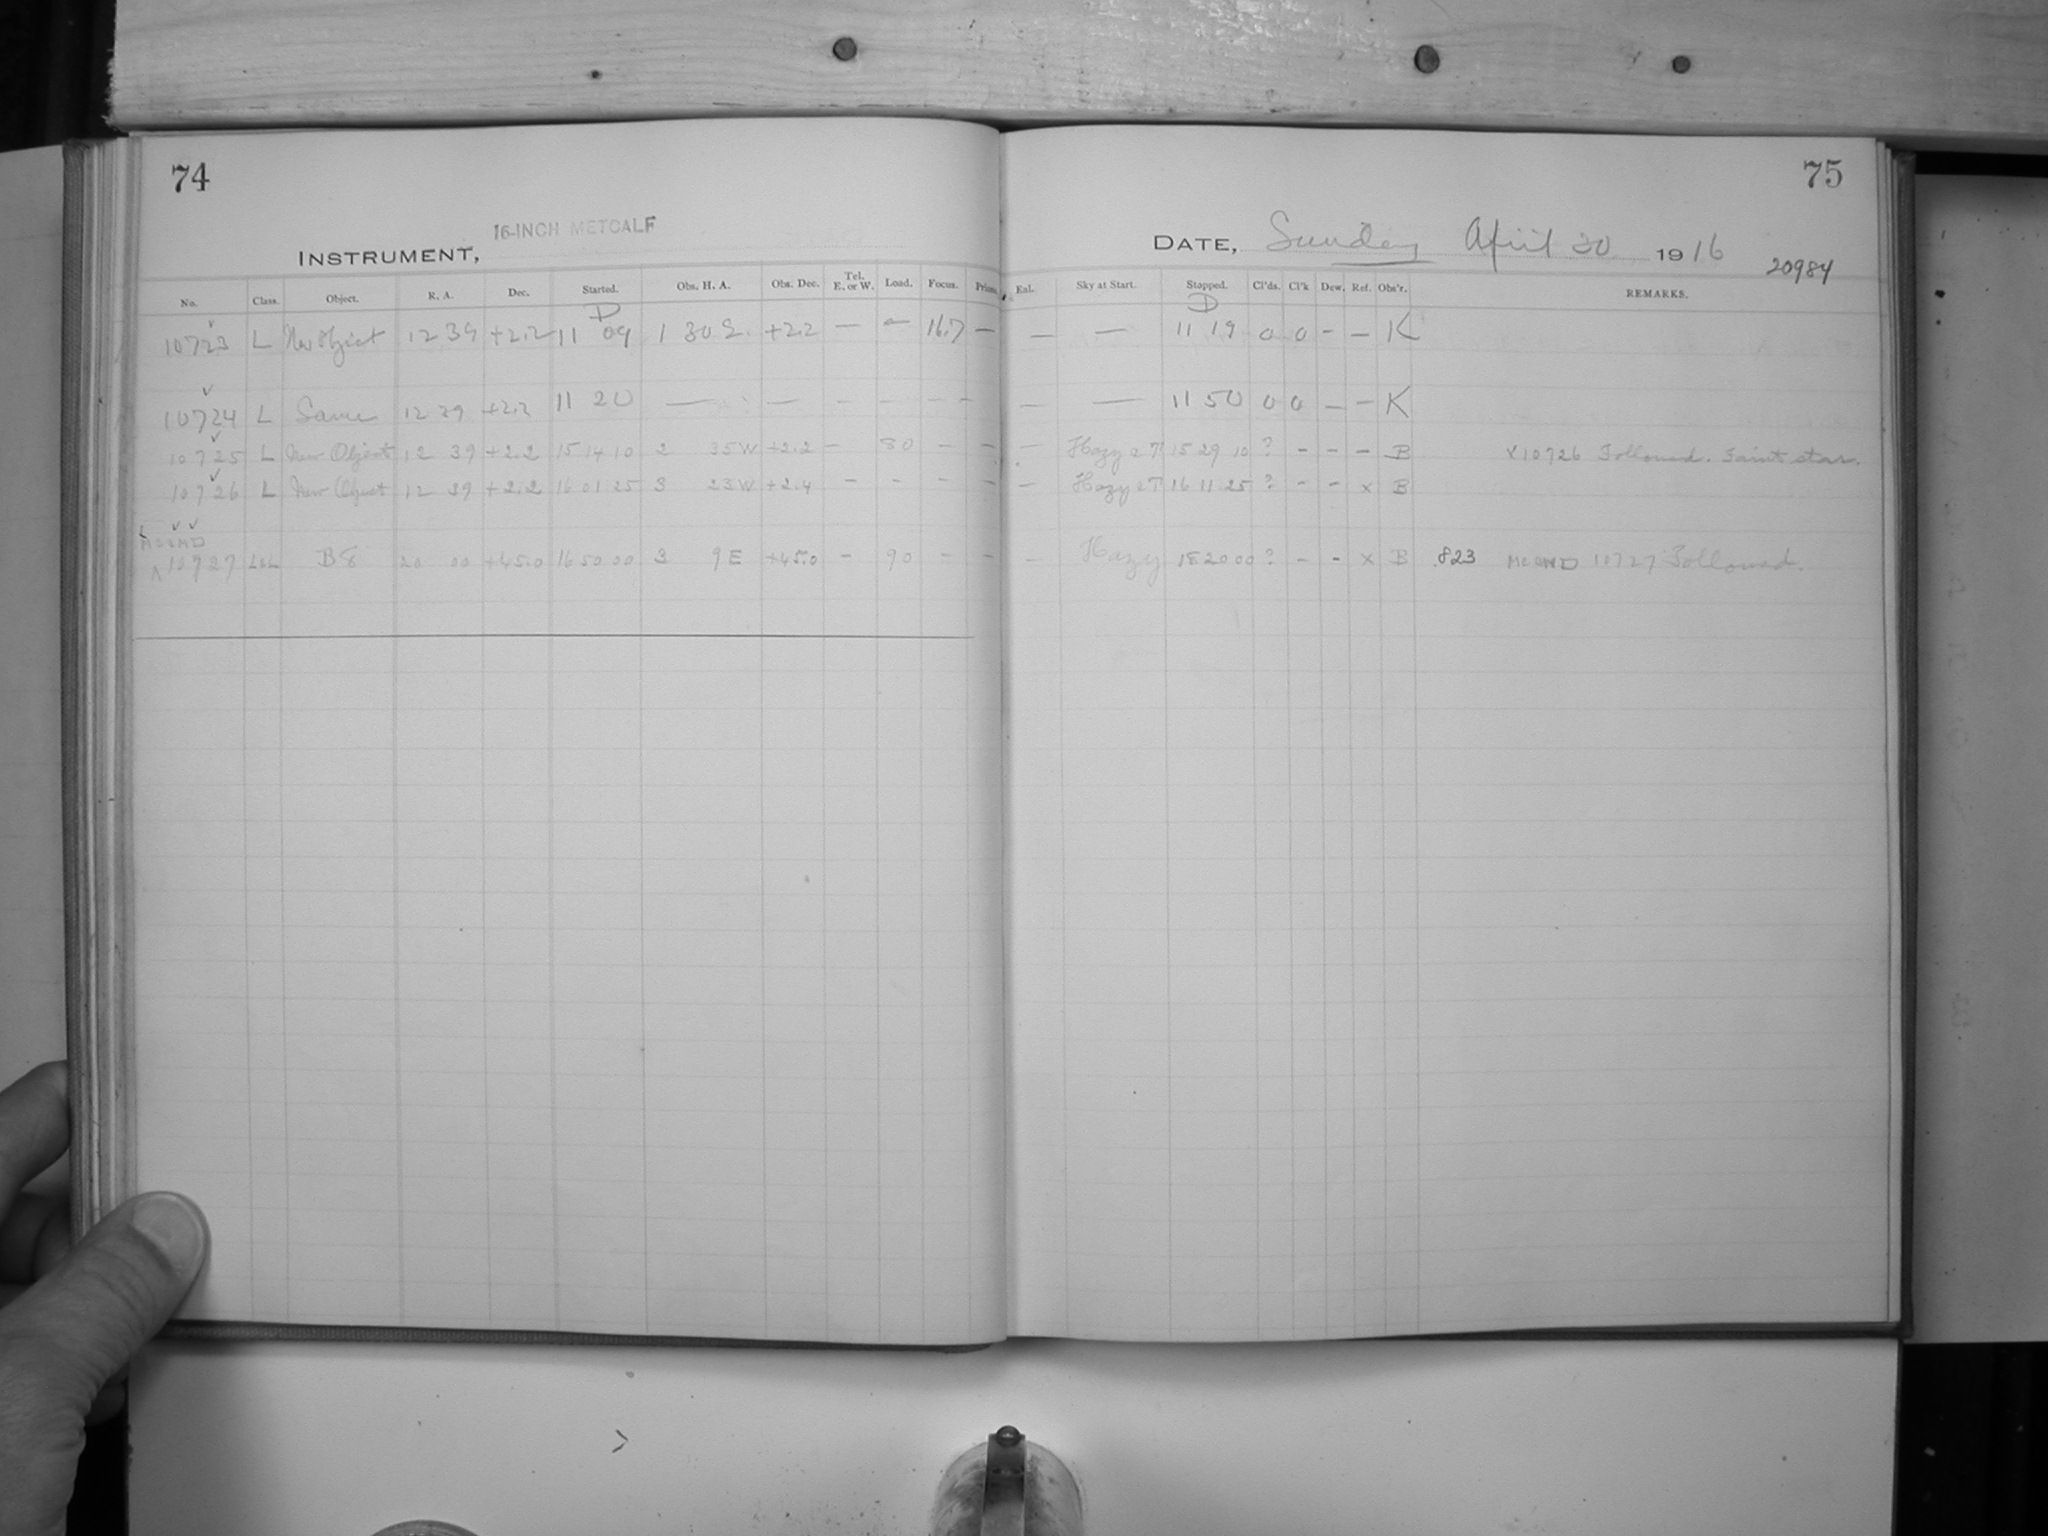 74
16-INCH METCALF
INSTRUMENT,
No. Class. Object. R. A. Dec. Started. Obs. H. A. Obs. Dec. Tel. E. or W. Load. Focus. Prism.
D
10723 L New Object 12 39 +2.2 11 09 1 30 E. +2.2 — — 16.7 —
10724 L Same 12 39 +2.2 11 20 — — — — — —
10725 L New Object 12 39 +2.2 15 14 10 2 35 W +2.2 — 80 — —
10726 L New Object 12 39 +2.2 16 01 25 3 23 W +2.4 — — — —
10727 L&L B8 20 00 +45.0 16 50 00 3 9 E +45.0 — 90 — —
75
DATE, Sunday April 30 1916
20984
Eal. Sky at Start. Stopped. Cl'ds. Cl'k Dew. Ref. Obs'r. REMARKS.
D
— — 11 19 0 0 — — K
— — 11 50 0 0 — — K
— Hazy 15 29 10 ? — — — B x10726 Followed. Faint star.
— Hazy 16 11 25 ? — — x B
— Hazy 18 20 00 ? — — x B .823 10727 Followed.